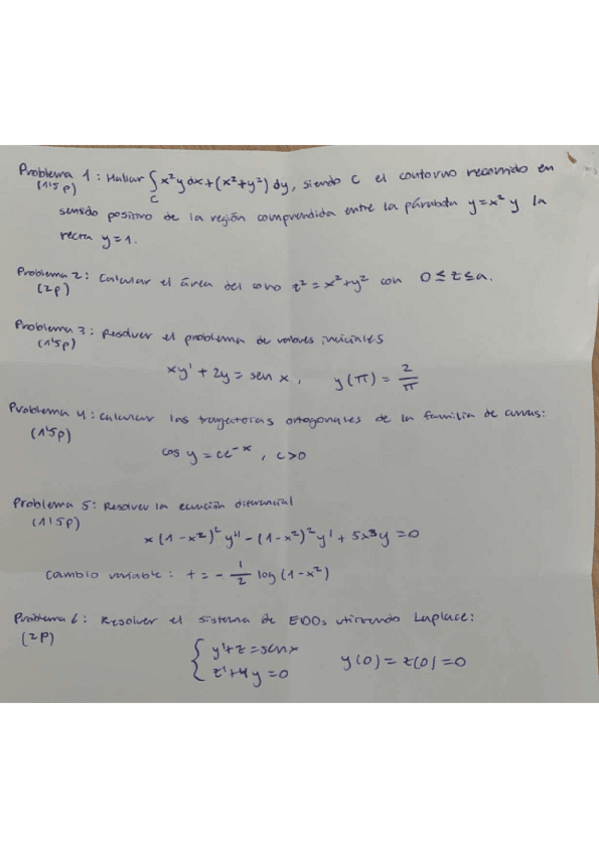 Problema 1: Hallar ∫_C x²y dx + (x²+y²) dy, siendo C el contorno recorrido en
(1'5p)
sentido positivo de la región comprendida entre la parábola y=x² y la
recta y=1.
Problema 2: Calcular el área del cono z² = x²+y² con 0≤z≤a.
(2p)
Problema 3: Resolver el problema de valores iniciales
(1'5p)
xy' + 2y = sen x, y(π) = 2/π
Problema 4: Calcular las trayectorias ortogonales de la familia de curvas:
(1'5p)
cos y = ce^-x, c>0
Problema 5: Resolver la ecuación diferencial
(1'5p)
x(1-x²)² y'' - (1-x²)² y' + 5x³y = 0
Cambio variable: t = -1/2 log(1-x²)
Problema 6: Resolver el sistema de EDOs utilizando Laplace:
(2p)
{ y'+z = sen x
z'+4y = 0 y(0) = z(0) = 0